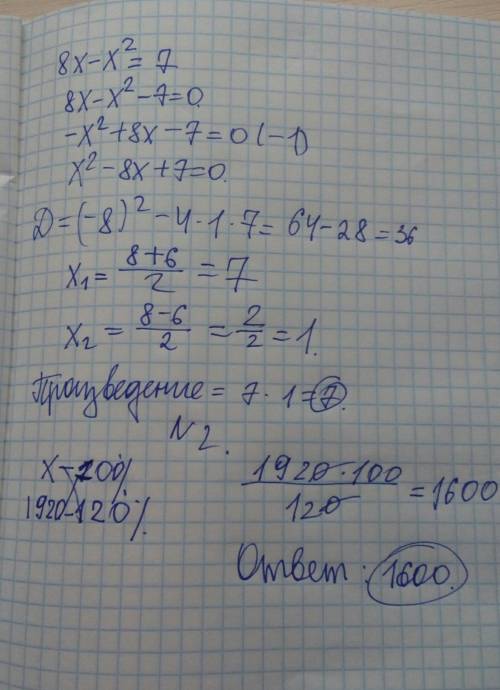 8x-x²=7
8x-x²-7=0.
-x²+8x-7=0 (-1)
x²-8x+7=0.
D=(-8)²-4·1·7=64-28=36
x₁=\frac{8+6}{2}=7
x₂=\frac{8-6}{2}=\frac{2}{2}=1.
Произведение=7·1=7.
N2.
x-100%
1920-120%
\frac{1920·100}{120}=1600
Ответ: 1600.